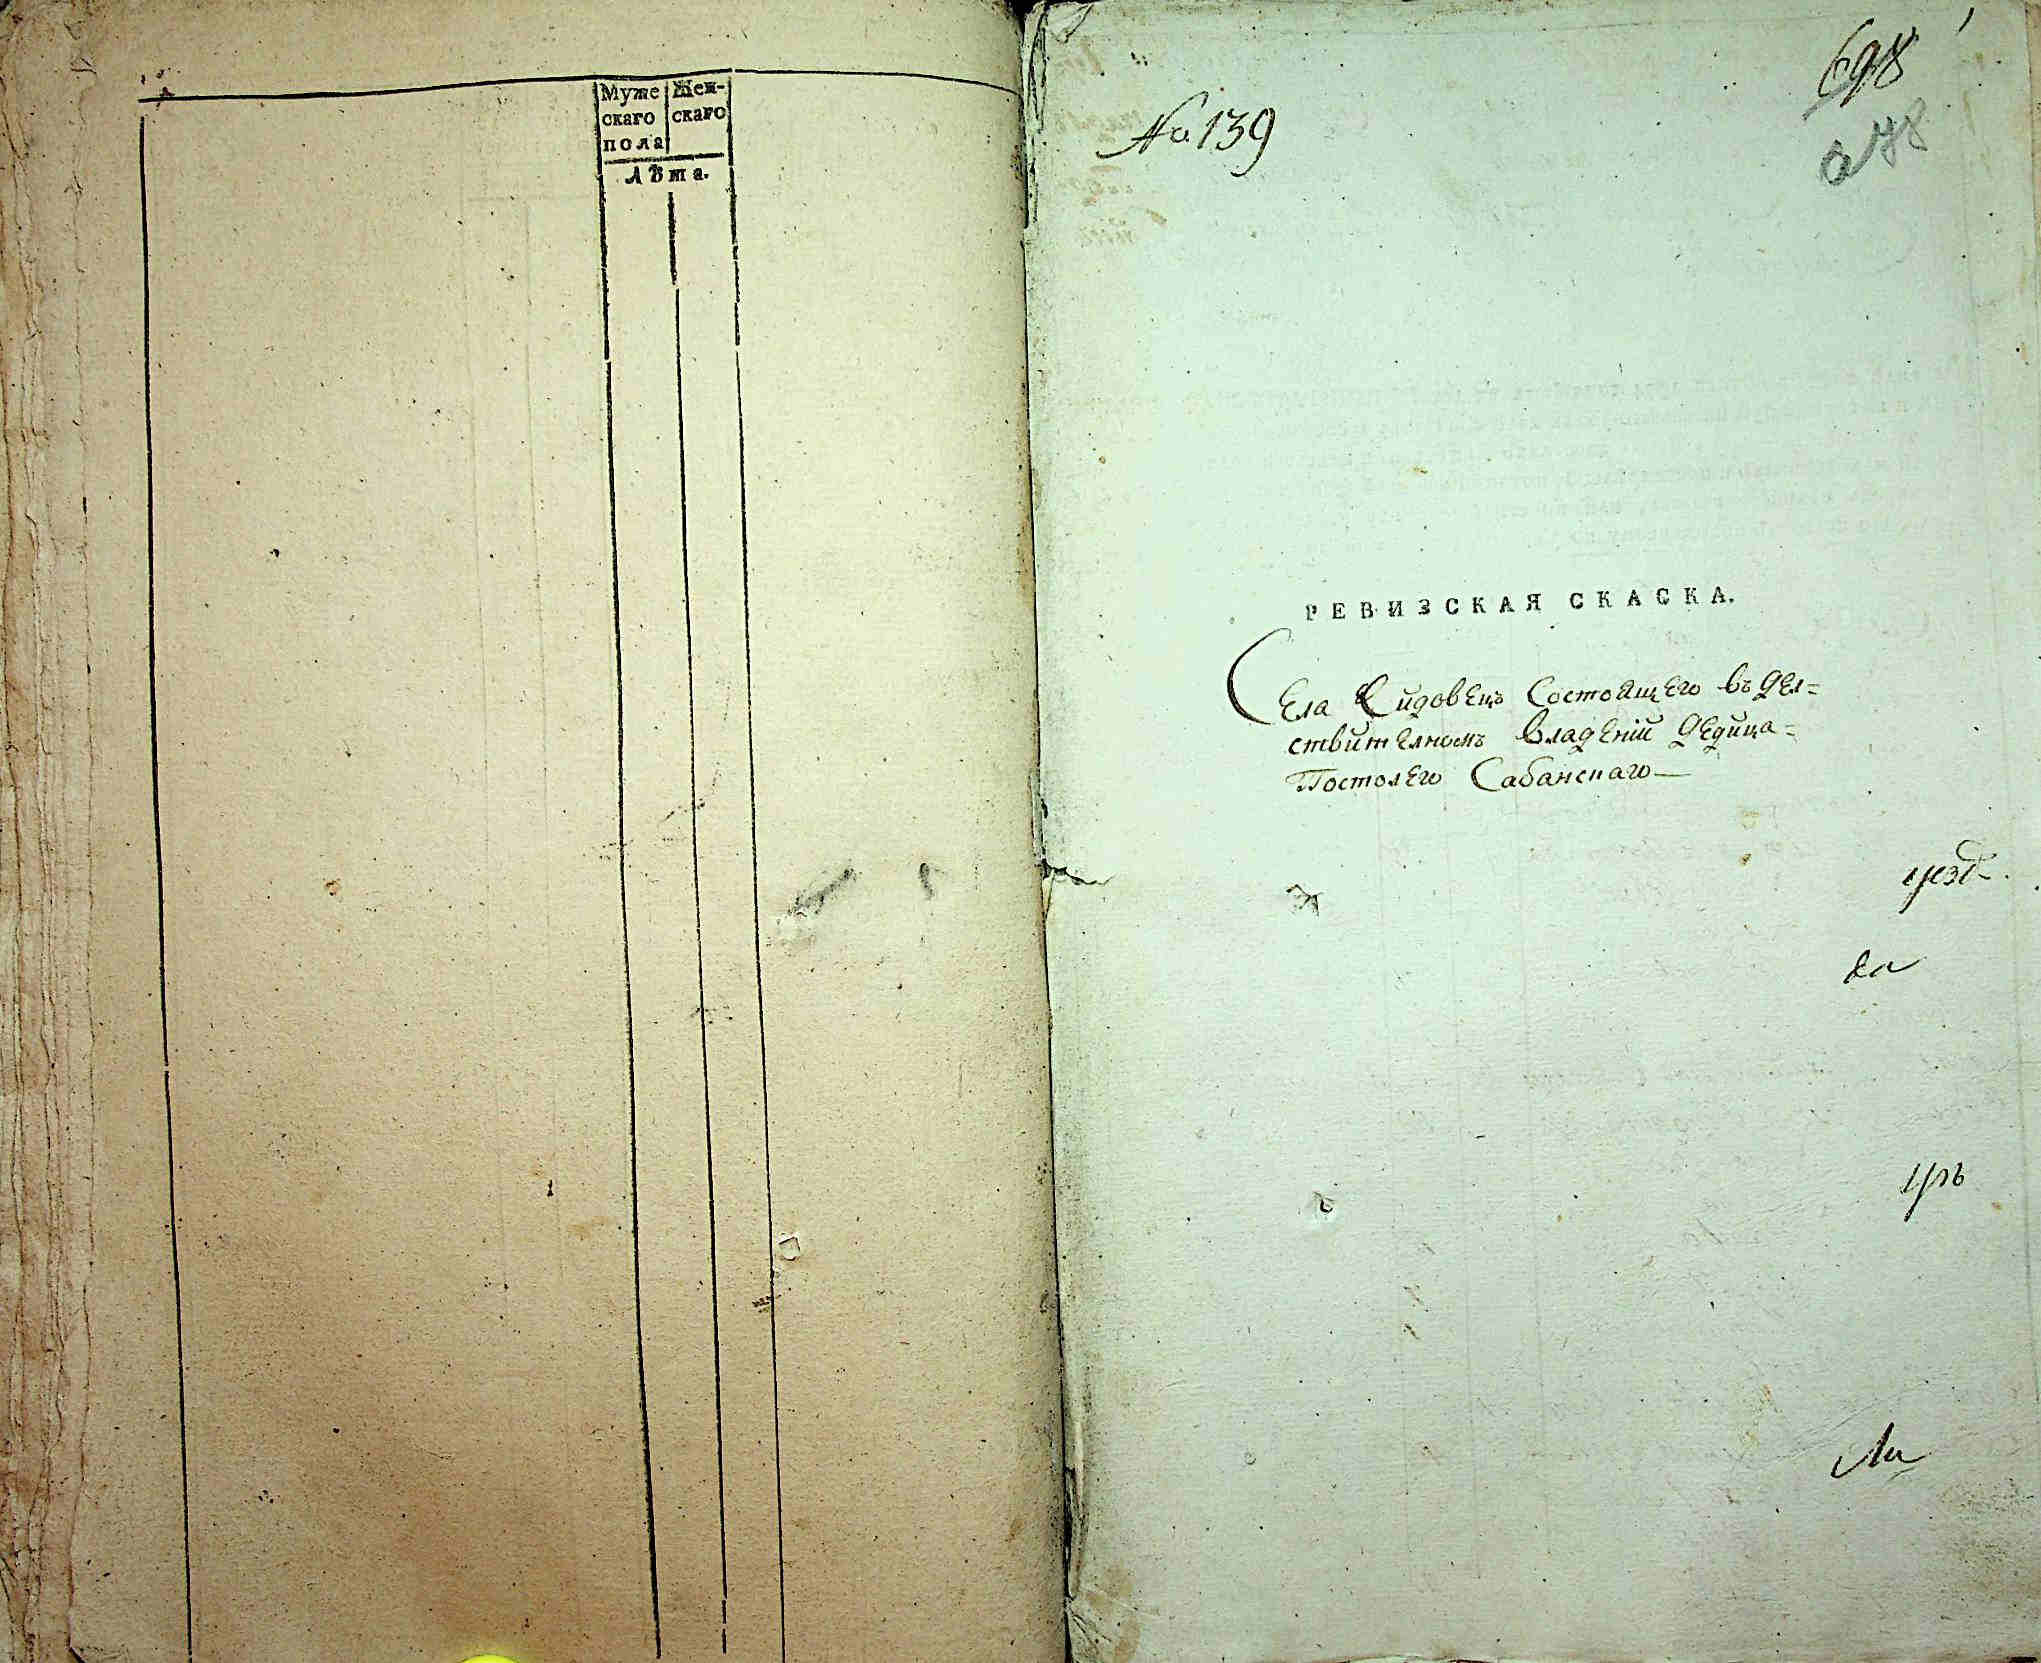 Муже
скаго
пола
Жен-
скаго
Лѣта.
№ 139
698
РЕВИЗСКАЯ СКАСКА.
Села Состоящего въ дел=
ствителномъ владений дедица=
Постолего Сабанскаго
уезд
ка
ць
Ли